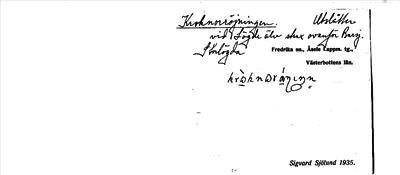 Kroknorröjningen. Utslåtter
vid Lögde älv strax ovanför
Storlögda
Fredrika sn., Åsele Lappm. tg.,
Västerbottens län.
Sigvard Sjölund 1935.